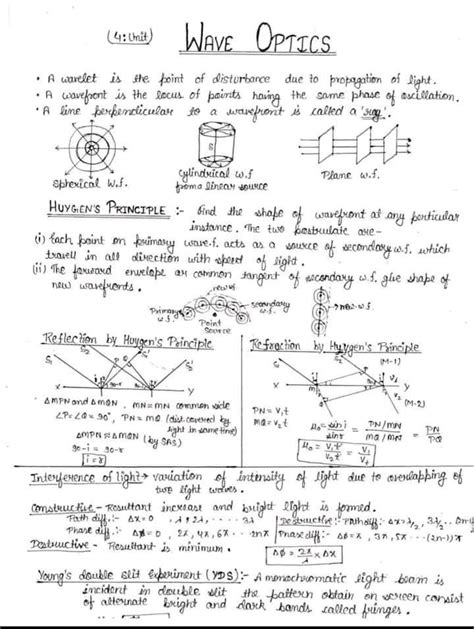 (4:Unit) WAVE OPTICS
• A wavelet is the point of disturbance due to propagation of light.
• A wavefront is the locus of points having the same phase of oscillation.
• A line perpendicular to a wavefront is called a 'ray'.
Spherical W.f.
Cylindrical W.f
from a linear source
Plane W.f.
HUYGEN'S PRINCIPLE :- find the shape of wavefront at any particular
instance. The two postulate are-
(i) Each point on primary wave.f. acts as a source of secondary w.f. which
travell in all direction with speed of light.
(ii) The forward envelope or common tangent of secondary w.f. give shape of
new wavefronts.
new w.f
Primary w.f.
Point Source
secondary w.f.
new w.f
Reflection by Huygen's Principle
S₁
P
Q
X
M
N
Y
ΔMPN and ΔMQN, MN = MN common side
∠P = ∠Q = 90°, PN = MQ (dist. covered by
light in same time)
ΔMPN ≅ ΔMQN (by SAS)
90-i = 90-r
i = r
Refraction by Huygen's Principle
S₂
(M-1)
P
X
M
N
Y
Q
(M-2)
PN = V₁t
MQ = V₂t
μ₀ = sin i / sin r = PN/MN / MQ/MN = PN / PQ
μ₀ = V₁t / V₂t = V₁ / V₂
Interference of light → variation of intensity of light due to overlapping of
two light waves.
Constructive - Resultant increase and bright light is formed.
Path diff. :- Δx = 0, λ, 2λ, ... 3λ
Phase diff :- Δϕ = 0, 2π, 4π, 6π ... 2nπ
Destructive :- Path diff :- Δx = λ/2, 3λ/2
Phase diff :- Δϕ = π, 3π, 5π ... (2n-1)π
Destructive - Resultant is minimum.
Δϕ = 2π/λ × Δx
Young's double slit Experiment (YDS) :- A monochromatic light beam is
incident in double slit the pattern obtain on screen consist
of alternate bright and dark bands called fringes.